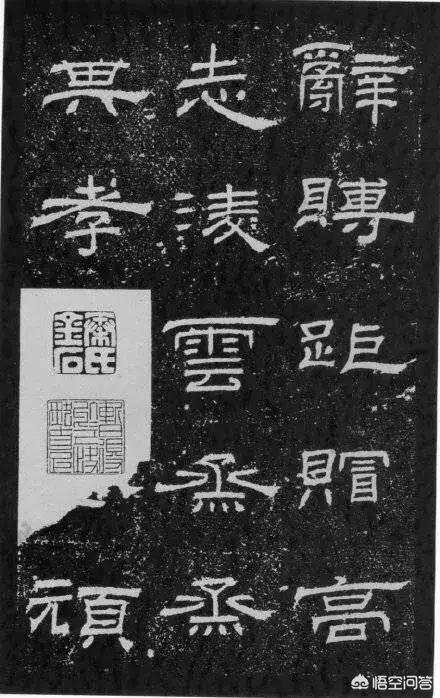 辭賻距賵高
志淩雲烝烝
其孝
頑
悟空问答